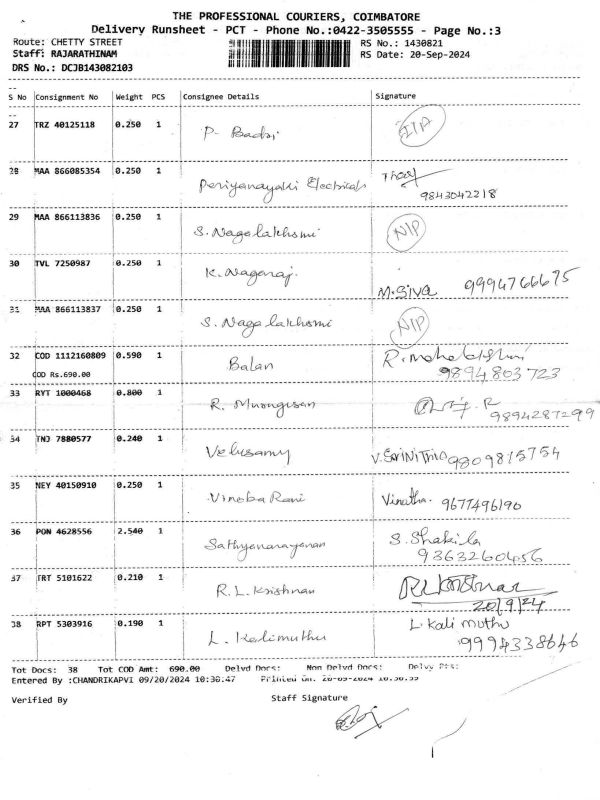 THE PROFESSIONAL COURIERS, COIMBATORE
Delivery Runsheet - PCT - Phone No.:0422-3505555 - Page No.:3
Route: CHETTY STREET RS No.: 1430821
Staff: RAJARATHINAM RS Date: 20-Sep-2024
DRS No.: DCJB143082103
S No Consignment No Weight PCS Consignee Details Signature
27 TRZ 40125118 0.250 1 P. Badri
28 MAA 866085354 0.250 1 Periyanayaki Electricals
9843042218
29 MAA 866113836 0.250 1 S. Nagalakhsmi NIP
30 TVL 7250987 0.250 1 K. Nagaraj. M. Siva 9994766675
31 MAA 866113837 0.250 1 S. Nagalakhsmi NIP
32 COD 1112160809 0.590 1 Balan
COD Rs.690.00 9894803723
33 RYT 1000468 0.800 1 R. Murugesan
9894287299
34 TNJ 7880577 0.240 1 Velusamy 9809815754
35 NEY 40150910 0.250 1 Vinoba Rani Vinatha. 9677496190
36 PON 4628556 2.540 1 Sathyanarayanan S. Shakila
9363260456
37 TRT 5101622 0.210 1 R.L. Krishnan
20/9/24
38 RPT 5303916 0.190 1 L. Kalimuthu L. Kali muthu
9994338646
Tot Docs: 38 Tot COD Amt: 690.00 Delvd Docs: Non Delvd Docs:
Entered By :CHANDRIKAPVI 09/20/2024 10:30:47 Printed On:
Verified By Staff Signature